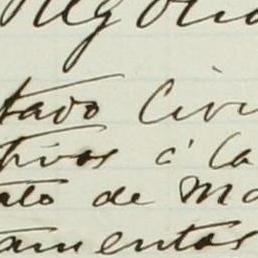 tado Civi
tivos á la
ato de Ma
amentos